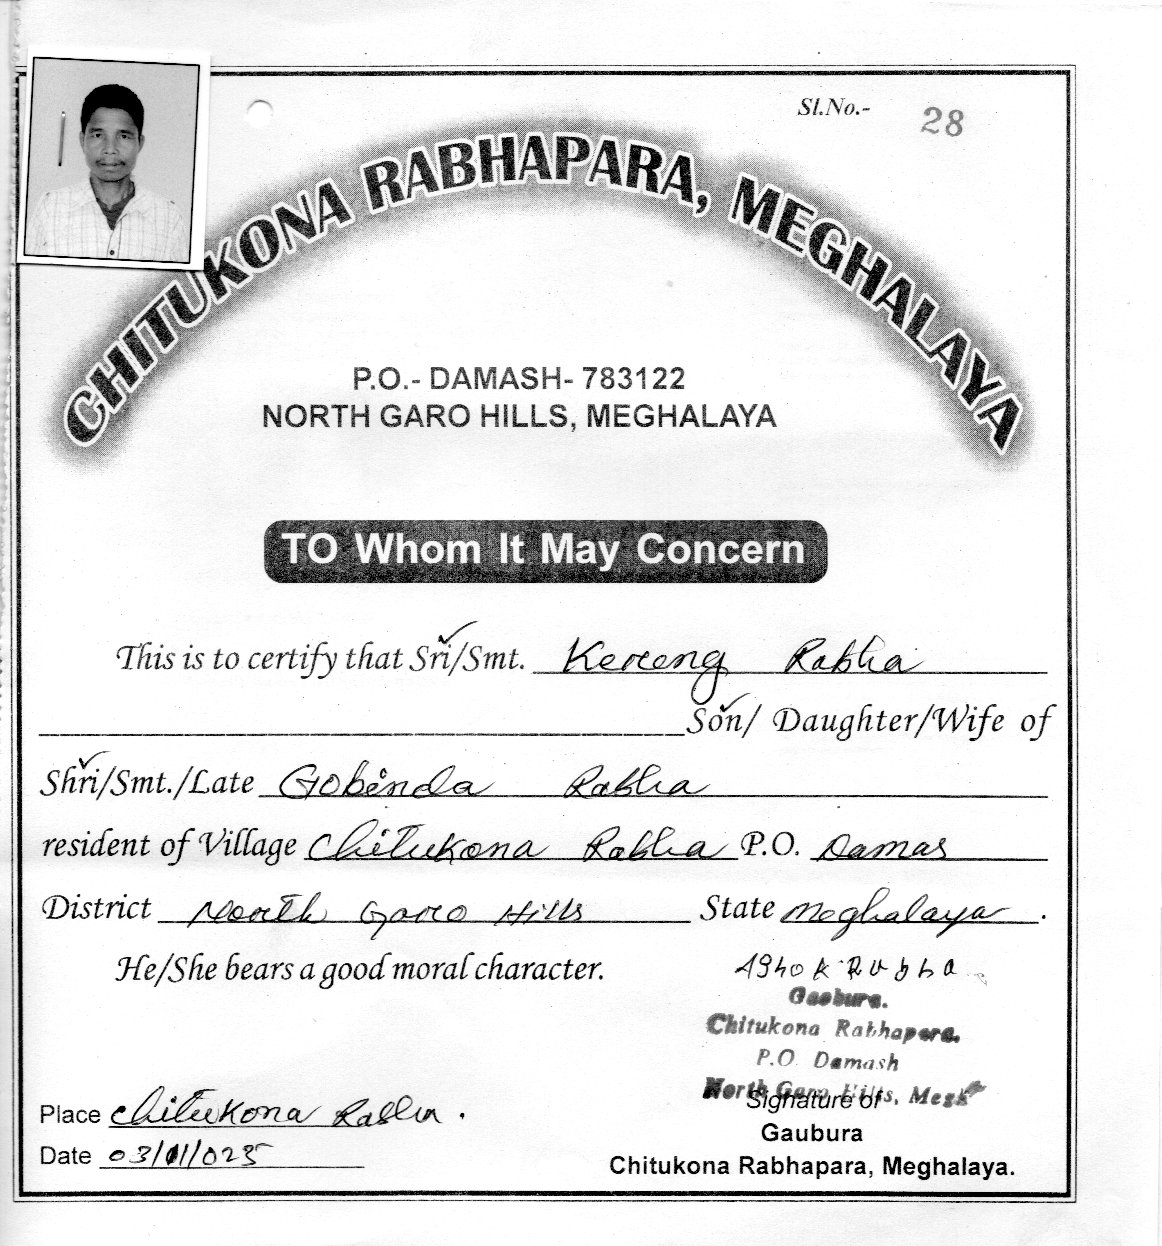 Sl.No.- 28
CHITUKONA RABHAPARA, MEGHALAYA
P.O.- DAMASH- 783122
NORTH GARO HILLS, MEGHALAYA
TO Whom It May Concern
This is to certify that Sri/Smt. Kereng Rabha
Son/ Daughter/Wife of
Shri/Smt./Late Gobinda Rabha
resident of Village Chitukona Rabha P.O. Damas
District North Garo Hills State Meghalaya.
He/She bears a good moral character.
Ashok Rabha
Gaobura.
Chitukona Rabhapara.
P.O. Damash
North Garo Hills, Megh
Place Chitukona Rabha.
Date 03/11/025
Signature of
Gaubura
Chitukona Rabhapara, Meghalaya.